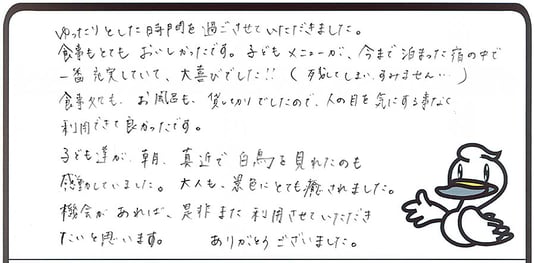 ゆったりとした時間を過ごさせていただきました。
食事もとても おいしかったです。子どもメニューが、今まで泊まった宿の中で
一番充実していて、大喜びでした!! (残してしまい、すみません…)
食事処も、お風呂も、貸し切りでしたので、人の目を気にする事なく
利用できて良かったです。
子ども達が、朝、真近で白鳥を見れたのも
感動していました。大人も、景色にとても癒されました。
機会があれば、是非また利用させていただき
たいと思います。 ありがとうございました。